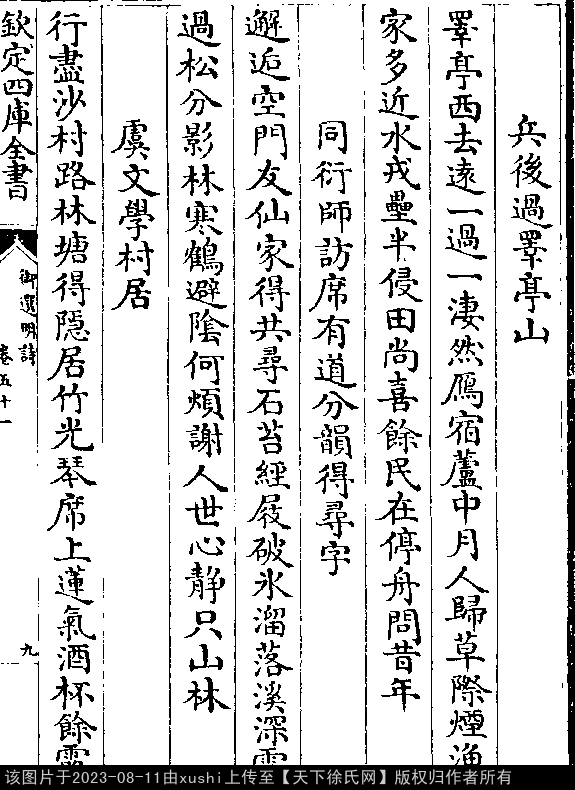 兵後過睪亭山
睪亭西去逺一過一淒然鴈宿蘆中月人歸草際煙漁
家多近水戎壘半侵田尚喜餘民在停舟問昔年
同衍師訪席有道分韻得尋字
邂逅空門友仙家得共尋石苔經屐破氷溜落溪深雲
過松分影林寒鶴避陰何煩謝人世心静只山林
虞文學村居
行盡沙村路林塘得隠居竹光琴席上蓮氣酒杯餘露
欽定四庫全書
御選明詩
卷五十一
九
该图片于2023-08-11由xushi上传至【天下徐氏网】版权归作者所有